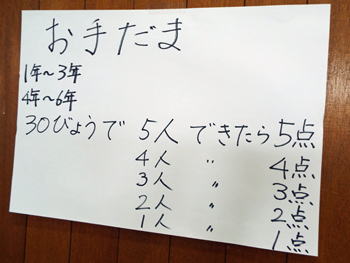 お手だま
1年～3年
4年～6年
30びょうで 5人 できたら 5点
4人 〃 4点
3人 〃 3点
2人 〃 2点
1人 〃 1点